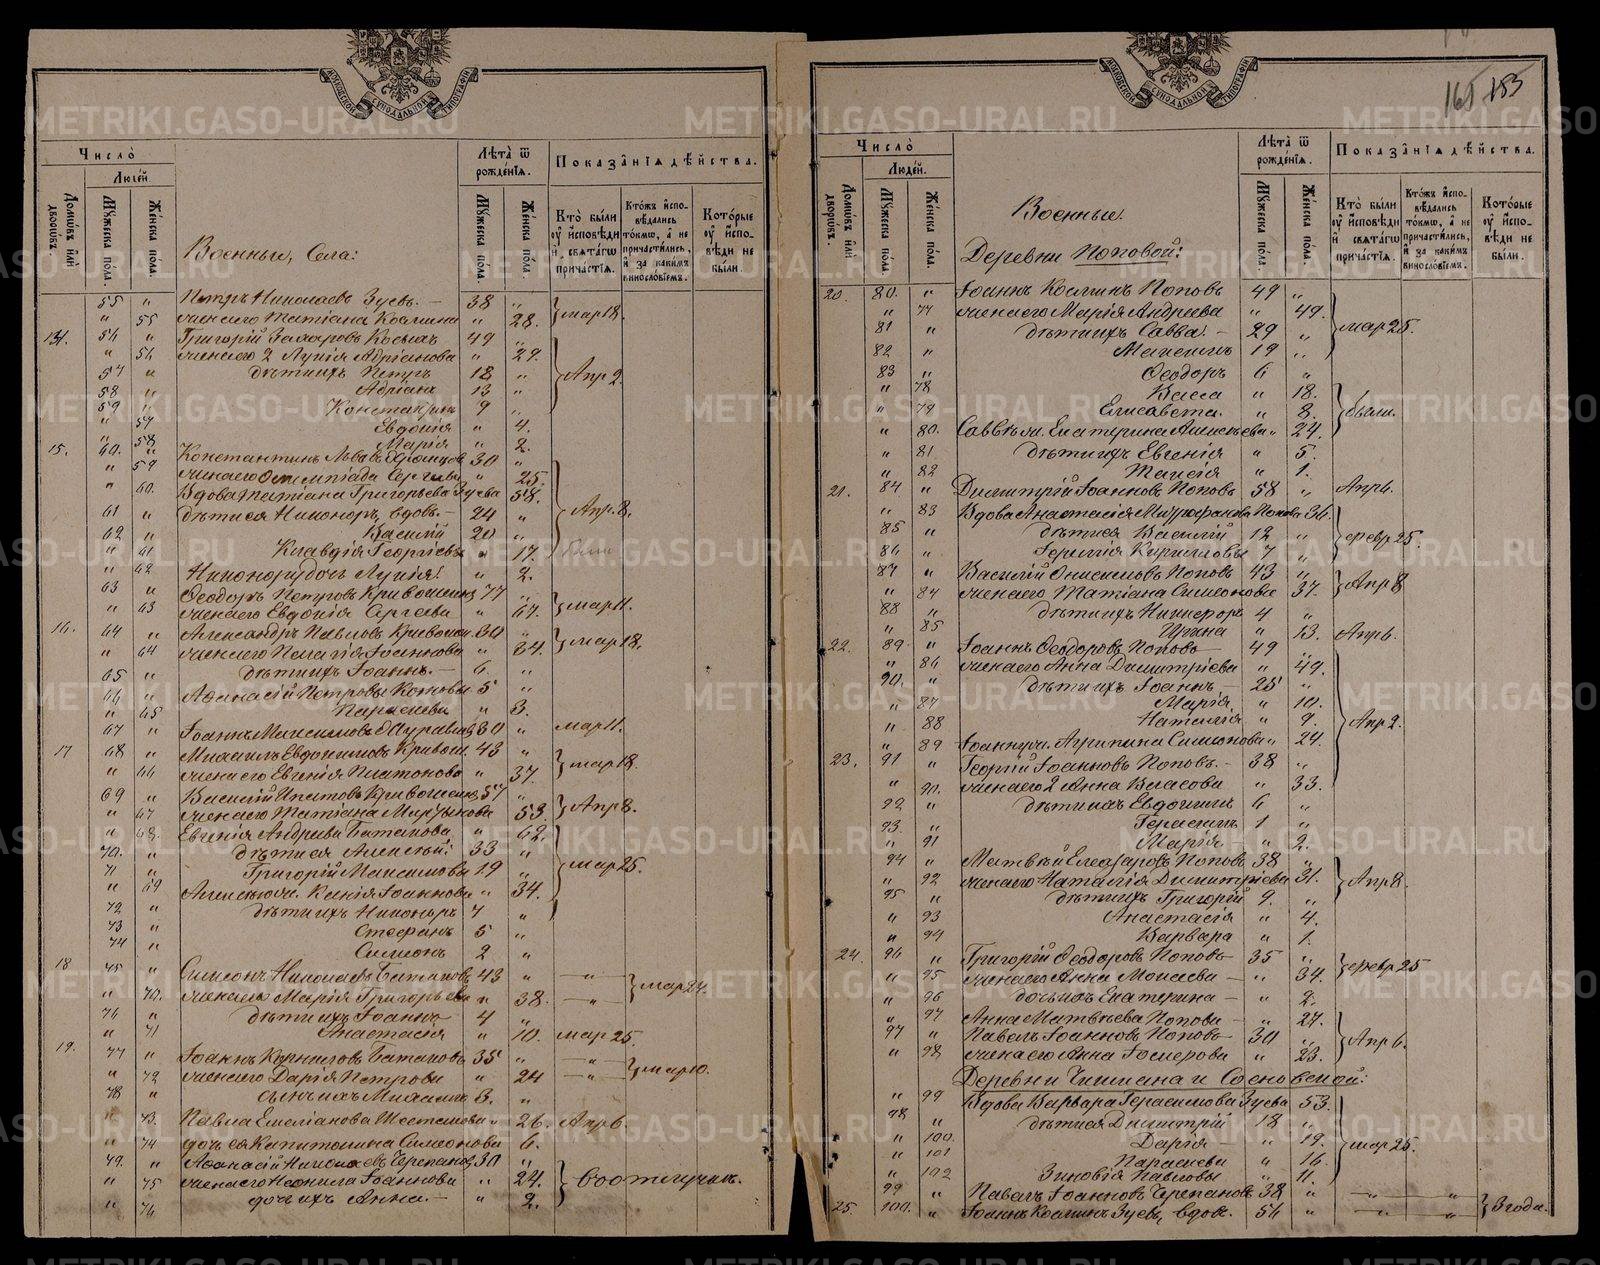 МОСКОВСКОЙ СѴНОДАЛЬНОЙ ТИПОГРАФІИ
Число̀
Людей.
Домѡвъ или дворѡвъ.
Мꙋжеска пола.
Женска пола.
Военные, Села:
Лѣта ѿ рожденїя.
Мꙋжеска пола.
Женска пола.
Показанїя дѣйства.
Кто были ᲂу исповѣди и свѧтагѡ причастїя.
Ктожъ исповѣдались токмѡ, а не причастились, и за какимъ винословїемъ.
Которые ᲂу исповѣди не были.
55 " Петръ Николаевъ Зуевъ. — 38 "
" 55 жена его Татіана Космина " 28. } мар 18.
56 " Григорій Захаровъ 49 "
" 56 жена его 2 Лукія Адріанова " 29.
57 " дѣти ихъ Петръ 18 " } Апр 2.
58 " Адріанъ 13 "
59 " Константинъ 9 "
" 57 Евдокія " 4.
" 58 Марія " 2.
15. 60. " Константинъ Львовъ 30 "
" 59 жена его Олимпіада Сергѣева " 25.
" 60. Вдова Татіана Григорьева Зуева 58.
61 " дѣти ея Никаноръ, вдовъ. — 24 " } Апр. 8.
62 " Василій 20 "
" 61 Клавдія Георгіева " 17.
" 62 Никанора дочь Лукія. " 2.
63 " Ѳеодоръ Петровъ Кривошеинъ 77 "
" 63 жена его Евдокія Сергѣева " 67. } мар 11.
16. 64 " Александръ Павловъ Кривошеи. 30 "
" 64 жена его Пелагія Іоаннова " 24. } мар 18.
65 " дѣти ихъ Іоаннъ. — 6 "
66 " Аѳанасій Петровъ 5 "
" 65 Параскева " 3.
67 " Іоаннъ Максимовъ 30 " мар 11.
17 68 " Михаилъ Евдокимовъ Кривош. 43 "
" 66 жена его Евгенія Платонова " 37. } мар 18.
69 " Василій Ипатовъ Кривошеинъ 57 "
" 67 жена его Татіана " 53. } Апр 8.
" 68. Евгенія Андреева Батакова " 62.
70. " дѣти ея Алексѣй: 33 "
71 " Григорій Максимовы 19 " } мар 25.
" 69 Алексѣю ж. Ксенія Іоаннова " 34.
72 " дѣти ихъ Никаноръ 7 "
73 " Стефанъ 5 "
74 " Симеонъ 2 "
18 75 " Симеонъ Николаевъ Батаковъ 43 " — " — } мар 24.
" 70. жена его Марія Григорьева " 38. — " —
76 " дѣти ихъ Іоаннъ — 4 "
" 71 Анастасія " 10. мар 25.
19. 77 " Іоаннъ Корниловъ Батаковъ 35 " — " — } мар 10.
" 72 жена его Дарія Петрова " 24 — " —
78 " сынъ ихъ Михаилъ 3. "
" 73. Павла Емеліанова " 26. Апр 6.
" 74 дочь ея Капитолина Симеонова 6.
79. " Аѳанасій Николаевъ Черепановъ 30 "
" 75 жена его Неонила Іоаннова " 24. } въ отлучкѣ.
" 76 дочь ихъ Анна. — " 2.
165 153
МОСКОВСКОЙ СѴНОДАЛЬНОЙ ТИПОГРАФІИ
Число
Людей.
Домѡвъ или дворѡвъ.
Мꙋжеска пола.
Женска пола.
Военные.
Деревни Поповой:
Лѣта ѿ рожденїя.
Мꙋжеска пола.
Женска пола.
Показанїя дѣйства.
Кто были ᲂу исповѣди и свѧтагѡ причастїя.
Ктожъ исповѣдались токмѡ, а не причастились, и за какимъ винословїемъ.
Которые ᲂу исповѣди не были.
20. 80. " Іоаннъ Косминъ Поповъ 49 "
" 77 жена его Марія Андреева " 49.
81 " дѣти ихъ Савва. — 29 " } мар 25.
82 " Максимъ 19 "
83 " Ѳеодоръ 6 "
" 78 Васса " 18.
" 79 Елисавета. " 8. } были.
" 80. Саввѣ ж. Екатерина Алексѣева " 24.
" 81 дѣти ихъ Евгенія " 5.
" 82 Таисія " 1.
21. 84 " Димитрій Іоанновъ Поповъ 58 " Апр 6.
" 83 Вдова Анастасія Митрофанова Попова 36.
85 " дѣти ея Василій 12 " } февр 25.
86 " Кириловы 7 "
87 " Василій Онисимовъ Поповъ 43 "
" 84 жена его Татіана Симеонова " 37. } Апр 8
88 " дѣти ихъ Никифоръ 4 "
" 85 Ирина " 13. Апр 6.
22. 89 " Іоаннъ Ѳеодоровъ Поповъ 49 "
" 86 жена его Анна Димитріева " 49.
90. " дѣти ихъ Іоаннъ — 25 "
" 87 Марія " 10.
" 88 Наталія " 9. } Апр 2.
" 89 Іоанну ж. Агрипина Симеонова " 24.
23. 91 " Георгій Іоанновъ Поповъ. — 38 "
" 90. жена его 2 Анна Власова " 33.
92 " дѣти ихъ Евдокимъ 6 "
93. " Герасимъ 1 "
" 91 Марія " 2.
94 " Матвѣй Елеазаровъ Поповъ 38 "
" 92 жена его Наталія Димитріева " 31. } Апр 8.
95 " дѣти ихъ Григорій 9. "
" 93 Анастасія " 4.
" 94 Варвара " 1.
24. 96 " Григорій Ѳеодоровъ Поповъ 35 "
" 95 жена его Анна Моисеева — " 34. } февр 25
" 96 дочь ихъ Екатерина — " 2.
" 97 Анна Матвѣева Попова — " 27.
97 " Павелъ Іоанновъ Поповъ 30 " } Апр 6.
" 98 жена его Анна " 23.
Деревни Чикмана и Сосновской:
" 99 Вдова Варвара Герасимова Зуева 53.
98 " дѣти ея Димитрій 18 "
" 100. Дарія — " 19. } мар 25.
" 101 Параскева " 16.
" 102 Зиновія Павловы " 11.
99 " Павелъ Іоанновъ Черепановъ 38 " — " — "
25. 100. " Іоаннъ Косминъ Зуевъ, вдов. 56 " — " — " } 3 года.
METRIKI.GASO-URAL.RU